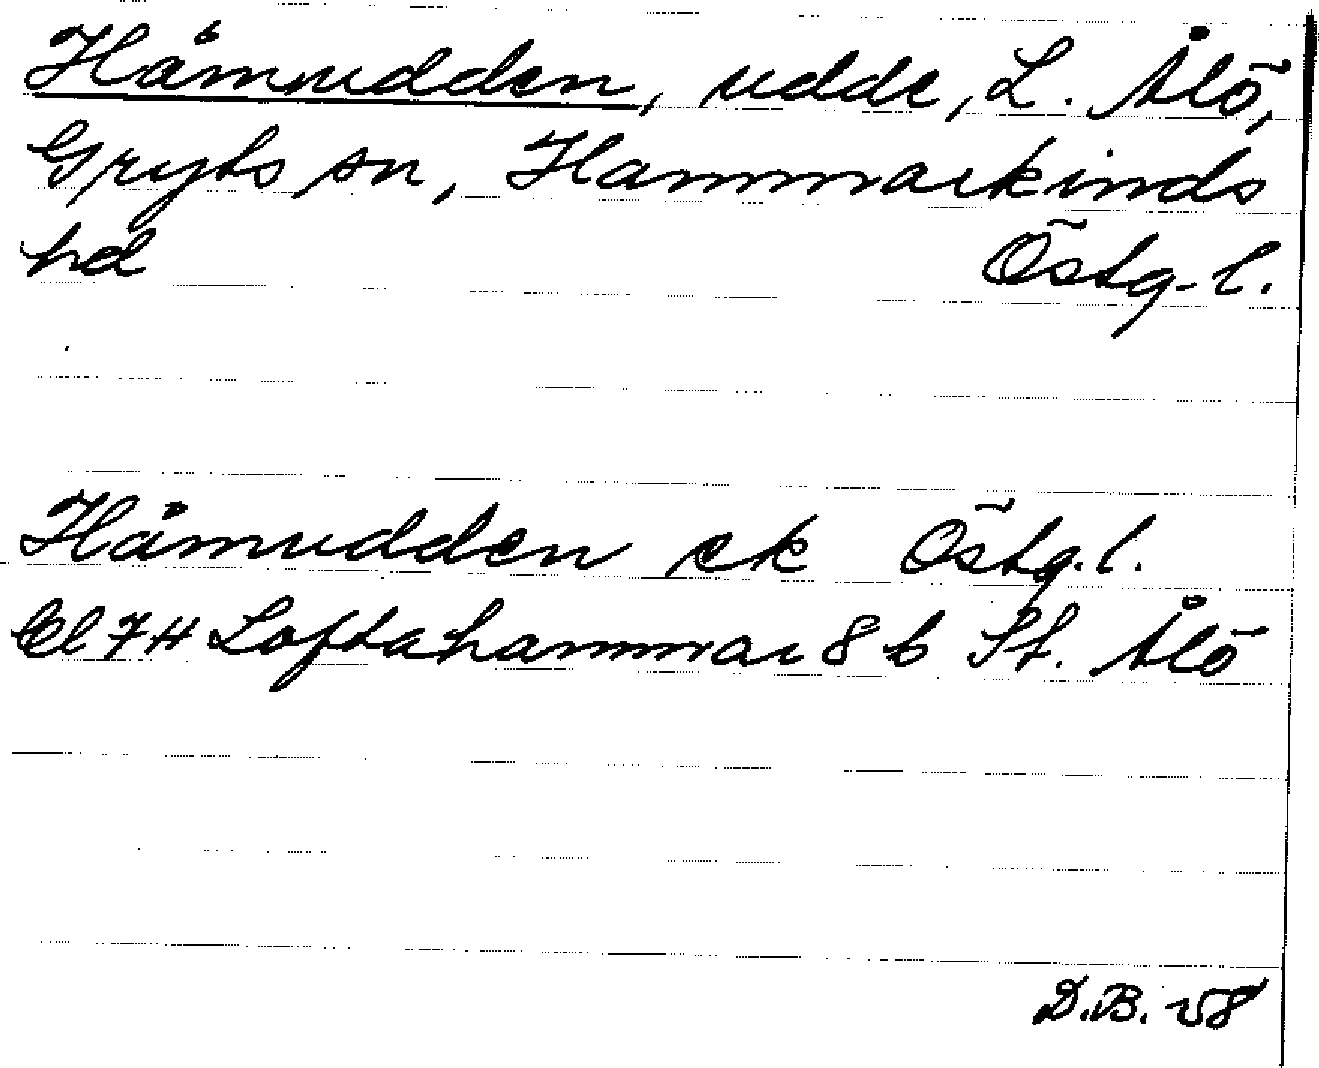 Håmudden, udde, L. Ålö,
Gryts sn, Hammarkinds
hd Östg. l.
Håmudden ek Östg. l.
Bl 7H Loftahammar 8 b St. Ålö
D.B. 58